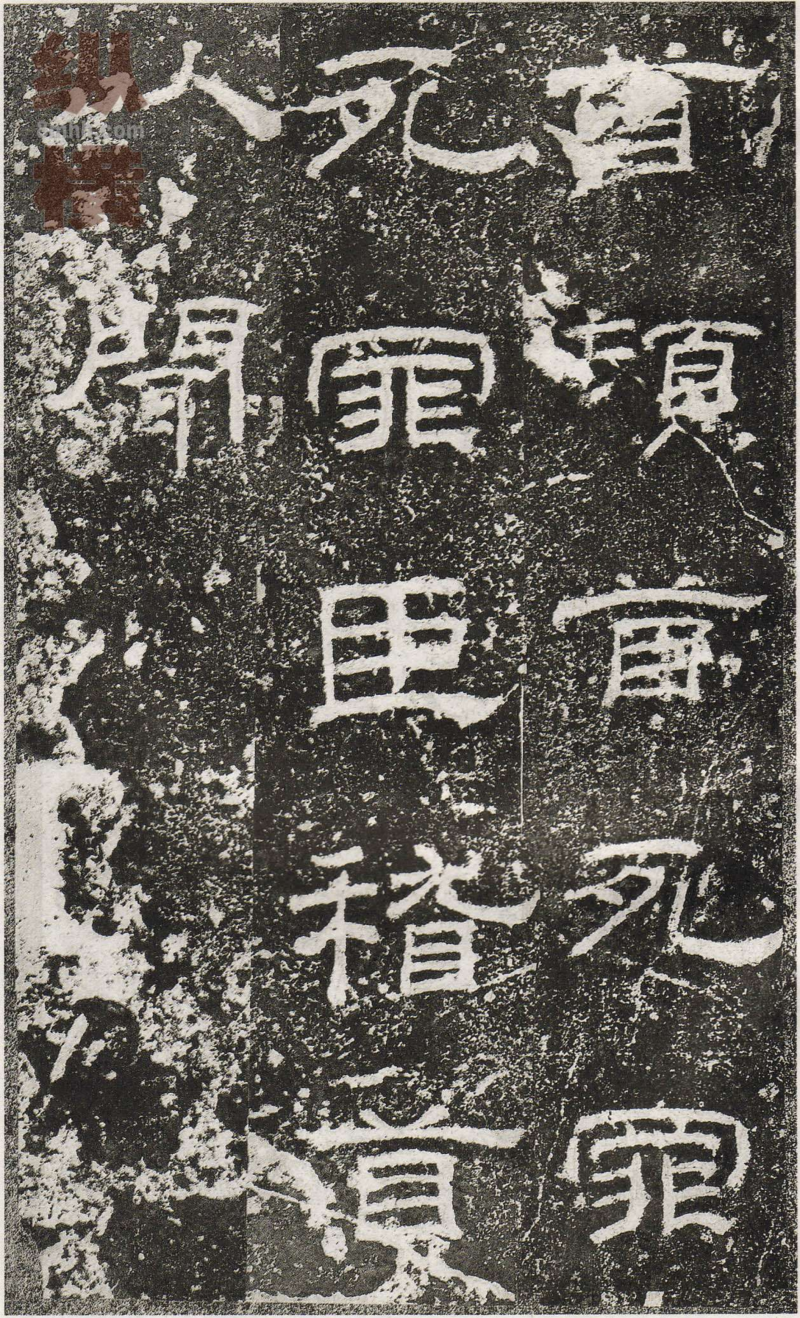 首頓首死罪
死罪臣稽首
以聞
纵横